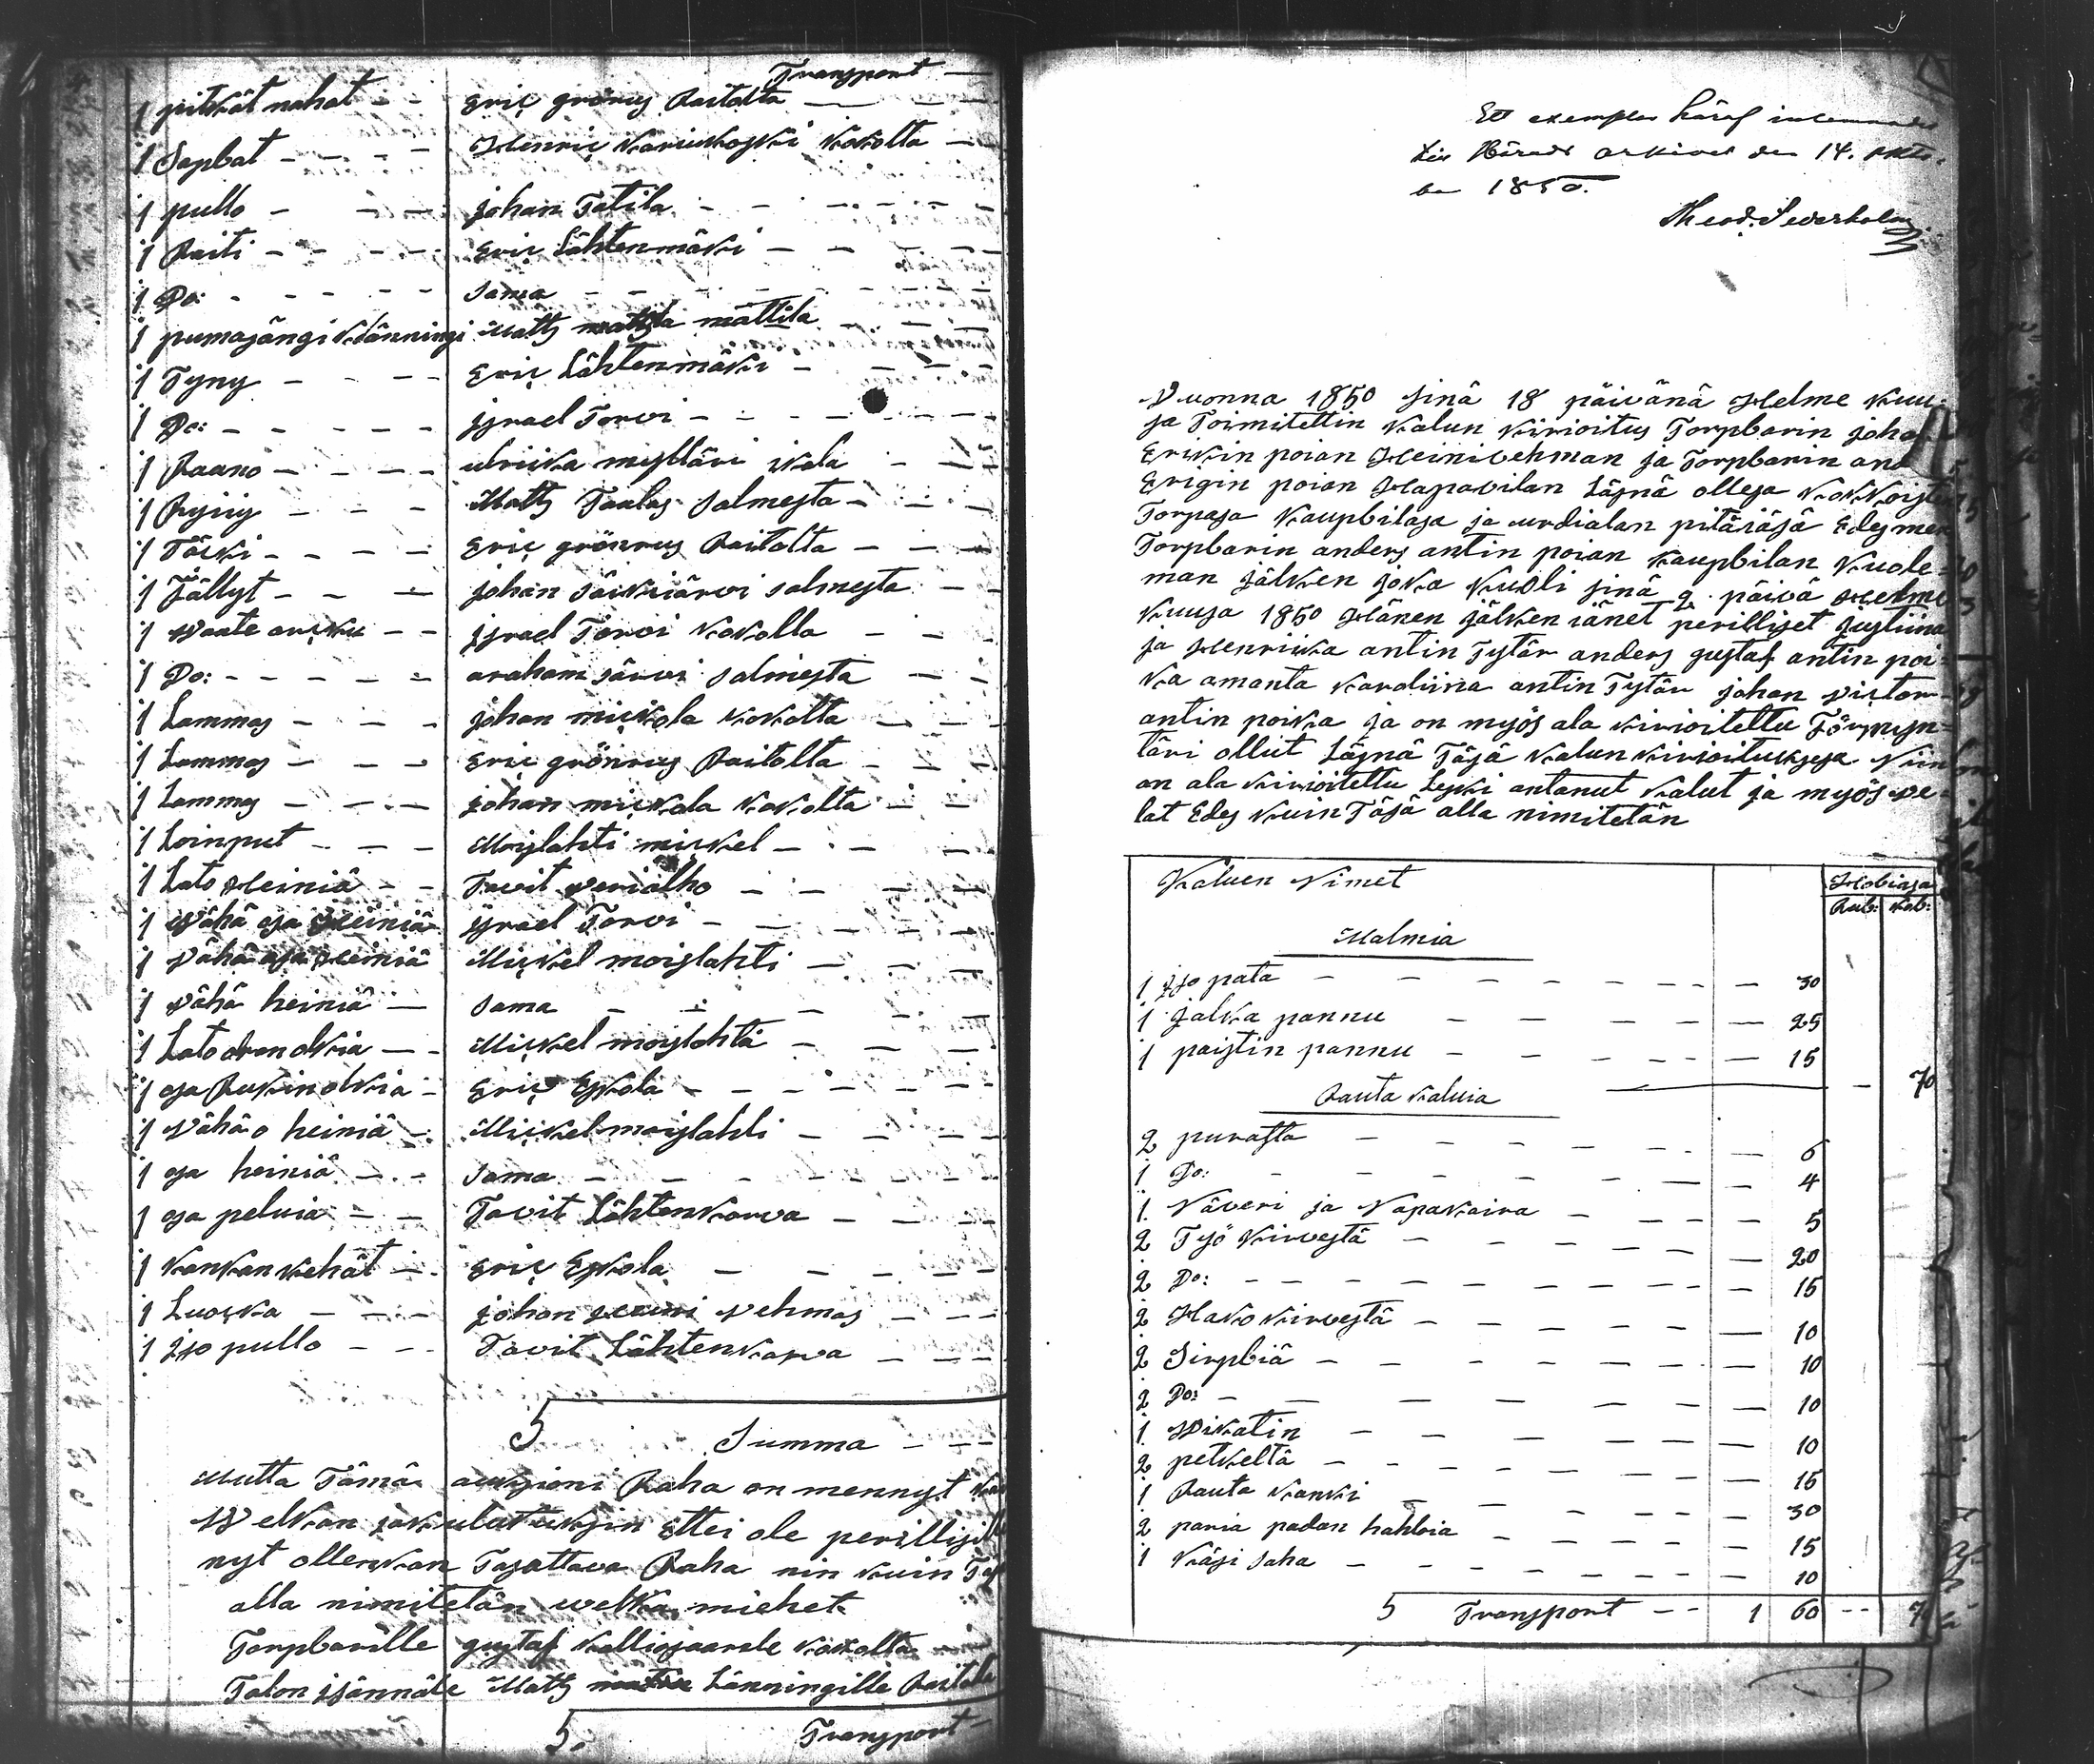 Transport —
1 pitkät nahat - - Eric grönrus Raitolta — — —
1 Sapbat - - - - Henric Kariukoski kokolta —
1 pullo - - - johan Totila - - - - -
1 Raiti - - - - Eric Lähtenmäki - - - -
1 Do: - - - - - sama - - - -
1 pumasängi Matts mattila - - -
1 Tyny - - - - Eric Lähtenmäki - - - -
1 Do: - - - - - jsrael Torvi - - - - -
1 Raano - - - - ulriika mylläri - - -
1 Ryjy - - - Matts Taulas Salmesta - - -
1 Täcki - - - - Eric grönrus Raitolta - - -
1 Fällyt - - - johan Säikiärvi salmesta - -
1 Waate arcku - - jsrael Torvi kokolla - - -
1 Do: - - - - - araham järvi salmesta - -
1 Lammas - - - johan mickola kokolta - - -
1 Lammas - - - Eric grönrus Raitolta - - -
1 Lammas - - - johan mickola kokolta - - -
1 Loinput - - - Moislahti mickel - - -
1 Lato Heiniä - - Tavit verialho - - - -
1 Vähä osa Heiniä jsrael Torvi - - - - -
1 Vähä osa Heiniä Mickel moislahti - - - -
1 Vähä heiniä - Sama - - - - -
1 Lato olkia - - Mickel moislahti - - -
1 osa Rukin olkia - Eric Eskola - - - - -
1 Vähä o heiniä - Mickel moislahti - - - -
1 osa heiniä - - - Sama - - - - - -
1 osa peluia - - Tavit Lähtenkorva - - - -
1 Kankan kehät - - Eric Eskola - - - - -
1 Luocka - - - johan Heini Vehmas - - -
1 Jso pullo - - - Tavit Lähtenkorva - - -
S Summa - - -
Mutta Tämä auxsioni Raha on mennyt
Welkan jakulutuksin Ettei ole
nyt ollenkan Tasattava Raha nin kuin
alla nimitetän welka miehet
Torpbarille gustaf kalliosaarele kokolta
Talon jsännäle Matts Länningille
S. Transport -
Ett exemplar häraf inlemnadt
till Härads arkivet den 14. Okto-
ber 1850.
Theod. Sederholm
Vuonna 1850 sinä 18 päivänä Helme kuu-
sa Toimitettin kalun kirioitus Torpbarin
Erikin poian Heinivehman ja Torpbarin
Erigin poian Hapavilan Läsnä ollesa
Torpasa kaupbilasa ja urdialan pitäiäsä Edesmen
Torpbarin anders antin poian kaupbilan kuole-
man jälken joka kuoli sinä 2 päivä Helme
kuusa 1850 Hänen jälken iänet perilliset justiina
ja Henriika antin Tytär anders gustaf antin poi-
ka amanta karoliina antin Tytär johan victor
antin poika ja on myös ala kirioitettu Förmyn-
täri ollut Läsnä Täsä kalun kirioituksesa Niin
on ala kirioitettu Leski antanut kalut ja myös ve-
lat Edes kuin Täsä alla nimitetän
Kaluen Nimet Hobiasa
Rub: Kob:
Malmia
1 jso pata - - - - - - 30
1 jalka pannu - - - - - 25
1 paistin pannu - - - - - 15
Rauta kaluia - 70
2 purasta - - - - - 6
1 Do: - - - - - - 4
1 Näveri ja Napakaira - - - - 5
2 Työ kirvestä - - - - - 20
2 Do: - - - - - - - 15
2 Hako kirvestä - - - - - 10
2 Sirpbiä - - - - - - 10
2 Do: - - - - - - 10
1 Wikatin - - - - - 10
2 petkeltä - - - - - - 15
1 Rauta kanki - - - - - 30
2 paria padan hahloia - - - - 15
1 käsi saha - - - - - - 10
S Transport - - 1 60 - - 70